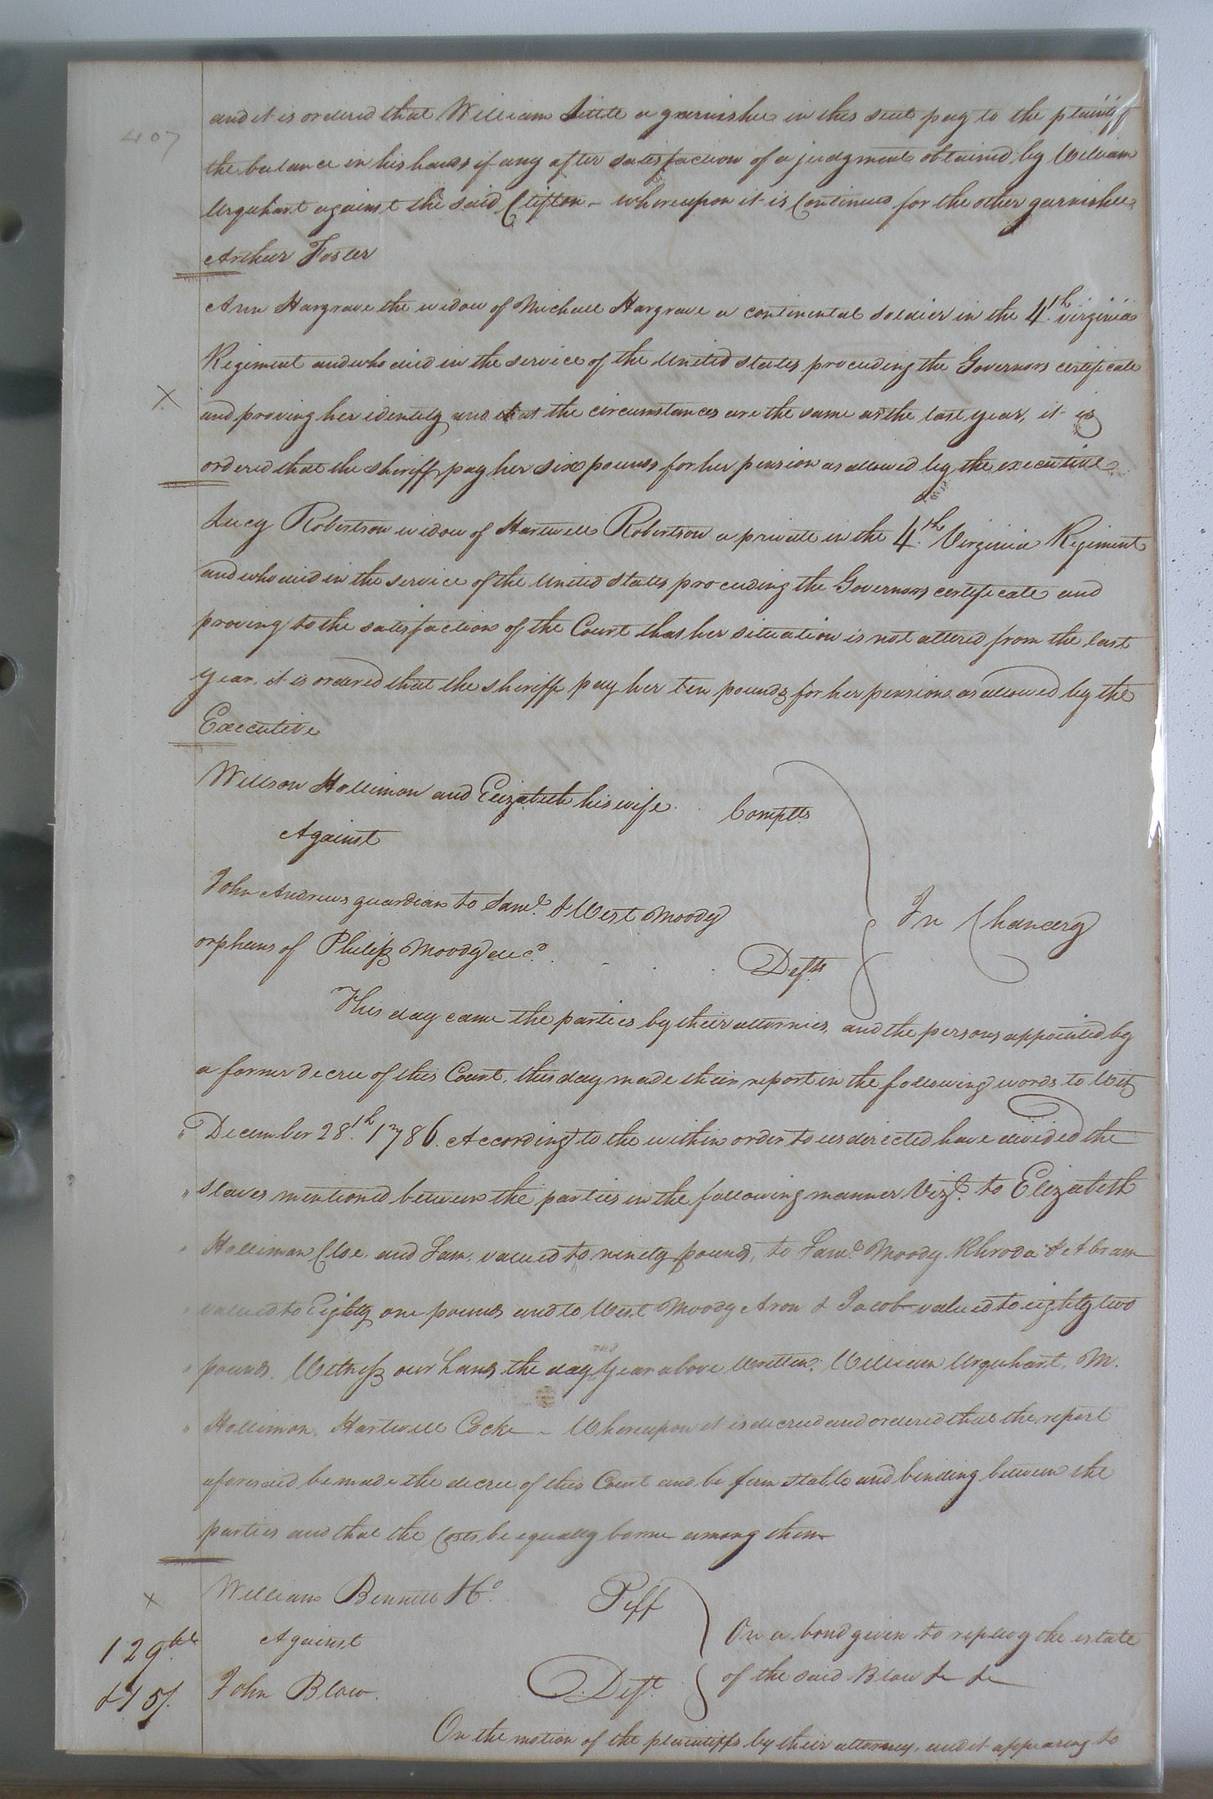 407
and it is ordered that William Little a garnishee in this suit pay to the plaintiff
the balance in his hands if any after satisfaction of a judgment obtained by William
Urquhart against the said Clifton - whereupon it is Continued for the other garnishee
Arthur Foster
Ann Hargrave the widow of Michael Hargrave a continental soldier in the 4th. virginia
Regiment and who died in the service of the United states proceeding the Governors certificate
X and proving her identity and that the circumstances are the same as the last year, it is
ordered that the sheriff pay her six pounds for her pension as allowed by the executive
Lucy Robertson widow of Hartwell Robertson a private in the 4th. Virginia Regiment
and who died in the service of the United States proceeding the Governors certificate and
proving to the satisfaction of the Court that her situation is not altered from the last
year, it is ordered that the sheriff pay her ten pounds for her pension as allowed by the
Executive
Willson Hollimon and Elizabeth his wife Complts
Against
John Andrews guardian to Saml. & West Moody In Chancery
orphans of Philip Moody decd. Defts
This day came the parties by their attornies, and the persons appointed by
a former decree of this Court, this day made their report in the following words to Wit
" December 28th. 1786. According to the within order to us directed have divided the
" slaves mentioned between the parties in the following manner Vizt. to Elizabeth
" Holliman Cloe and Sam, valued to ninety pounds, to Saml. Moody Rhroda & Abram
" valued to Eighty one pounds and to West Moody Aron & Jacob valued to eighty two
" pounds. Witness our hands the day and Year above written. William Urquhart, M.
" Hollimon, Hartwell Cocke - Whereupon it is decreed and ordered that the report
aforesaid be made the decree of this Court and be firm stable and binding between the
parties and that the Costs be equally borne among them
X William Bennett Plff
129 Against On a bond given to replevy the estate
John Blow. Deft. of the said Blow & &
On the motion of the plaintiffs by their attorney, and it appearing to